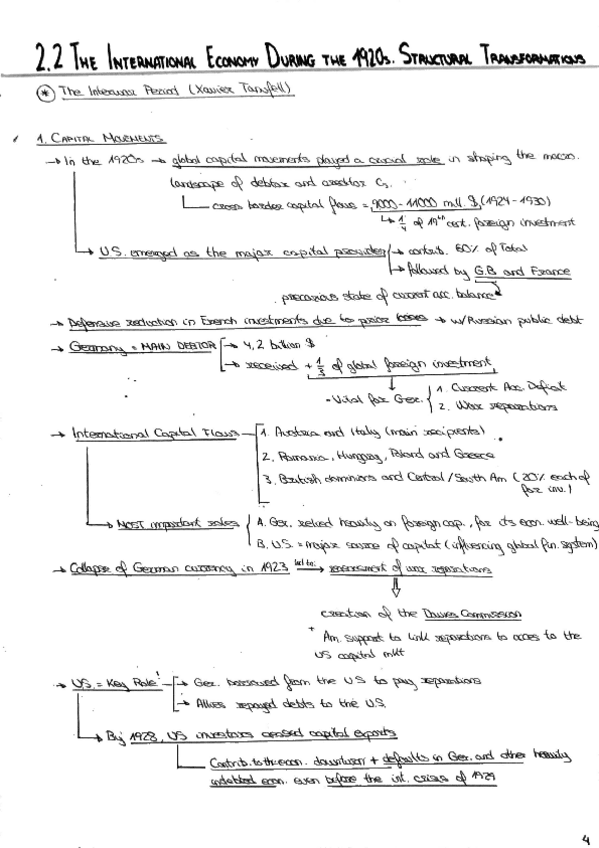 2.2 THE INTERNATIONAL ECONOMY DURING THE 1920s. STRUCTURAL TRANSFORMATIONS
* The Interwar Period (Xavier Tanfell)
1. CAPITAL MOVEMENTS
→ In the 1920s → global capital movements played a crucial role in shaping the macro.
landscape of debtor and creditor C.
cross border capital flows = 9000 - 11000 mill. $ (1924 - 1930)
↳ 1/4 of 19th cent. foreign investment
→ U.S. emerged as the major capital provider → contrib. 60% of Total
→ followed by G.B. and France
precarious state of current acc. balance
→ Defensive reduction in French investments due to prior losses → w/Russian public debt
→ Germany = MAIN DEBTOR → 4,2 billion $
→ received + 1/3 of global foreign investment
- Vital for Ger. 1. Current Acc. Deficit
2. War reparations
→ International Capital Flows 1. Austria and Italy (main recipients).
2. Romania, Hungray, Poland and Greece
3. British dominions and Central / South Am (20% each of
for inv.)
→ MOST important roles A. Ger. relied heavily on foreign cap., for its econ. well-being
B. U.S. = major source of capital (influencing global fin. system)
→ Collapse of German currency in 1923 led to: reassessment of war reparations
creation of the Dawes Commission
+ Am. support to link reparations to acces to the
US capital mkt
→ U.S. = Key Role! → Ger. borrowed from the US to pay reparations
→ Allies repayed debts to the U.S.
→ By 1928, US investors ceased capital exports
Contrib. to the econ. downturn + defaults in Ger. and other heavily
indebted econ. even before the int. crisis of 1929
4